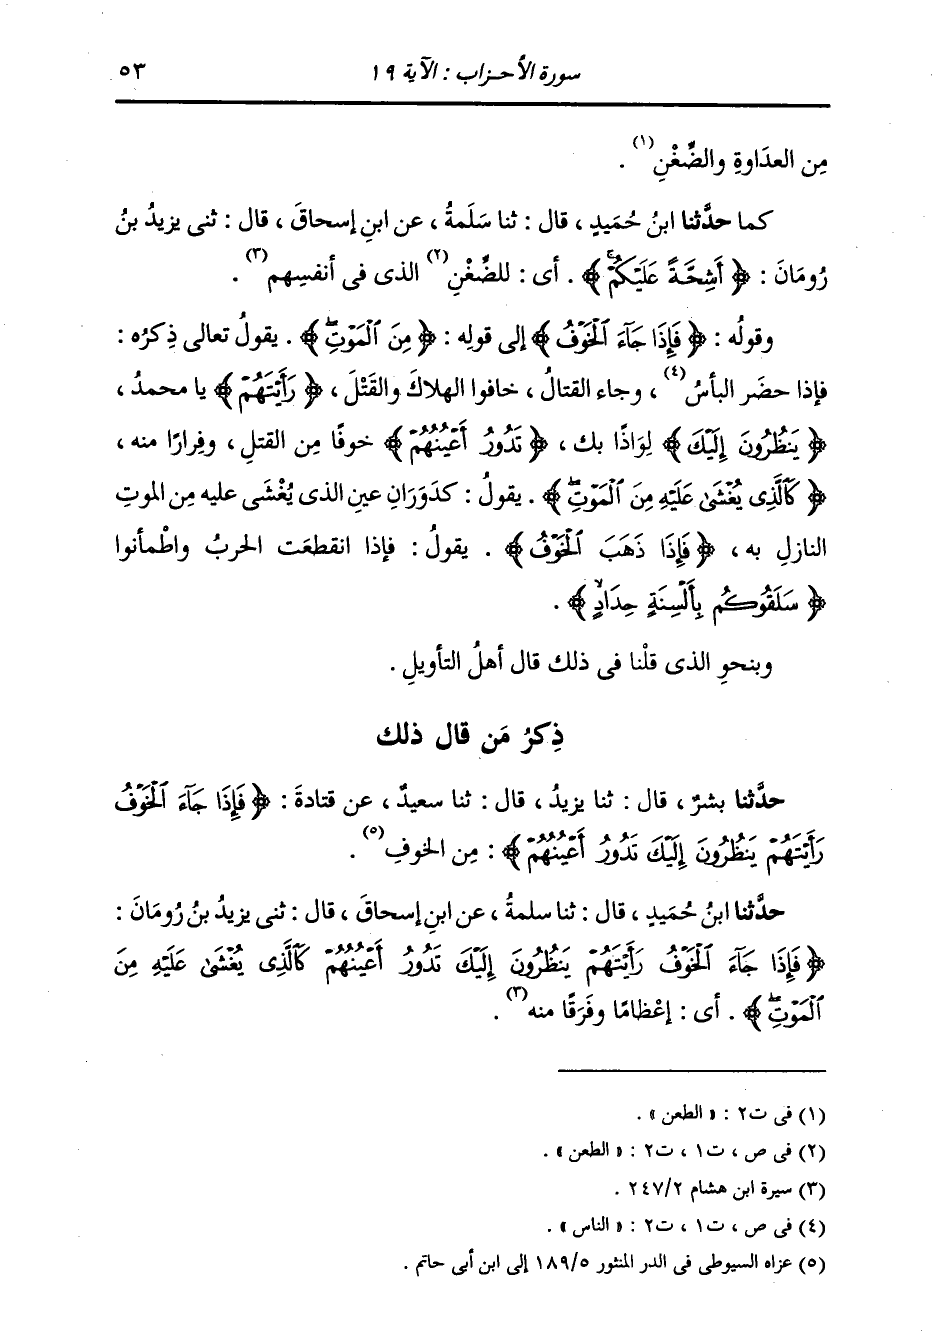 سورة الأحزاب : الآية ١٩ ٥٣
مِن العدَاوةِ والضِّغْنِ(١) .
كما حدَّثنا ابنُ حُمَيدٍ ، قال : ثنا سَلَمةُ ، عن ابنِ إسحاقَ ، قال : ثنى يزيدُ بنُ
رُومَانَ : ﴿ أَشِحَّةً عَلَيْكُمْ ﴾ . أى : للضِّغْنِ(٢) الذى فى أنفسِهم(٣) .
وقولُه : ﴿ فَإِذَا جَآءَ ٱلْخَوْفُ ﴾ إلى قولِه : ﴿ مِنَ ٱلْمَوْتِۖ ﴾ . يقولُ تعالى ذِكرُه :
فإذا حضَر البأسُ(٤) ، وجاء القتالُ ، خافوا الهلاكَ والقَتْلَ ، ﴿ رَأَيْتَهُمْ ﴾ يا محمدُ ،
﴿ يَنظُرُونَ إِلَيْكَ ﴾ لِوَاذًا بك ، ﴿ تَدُورُ أَعْيُنُهُمْ ﴾ خوفًا مِن القتلِ ، وفِرارًا منه ،
﴿ كَٱلَّذِى يُغْشَىٰ عَلَيْهِ مِنَ ٱلْمَوْتِۖ ﴾ . يقولُ : كدَوَرَانِ عينِ الذى يُغْشَى عليه مِن الموتِ
النازلِ به ، ﴿ فَإِذَا ذَهَبَ ٱلْخَوْفُ ﴾ . يقولُ : فإذا انقطعَت الحربُ واطْمأنوا
﴿ سَلَقُوكُم بِأَلْسِنَةٍ حِدَادٍ ﴾ .
وبنحوِ الذى قلْنا فى ذلك قال أهلُ التأويلِ .
ذِكرُ مَن قال ذلك
حدَّثنا بشرٌ ، قال : ثنا يزيدُ ، قال : ثنا سعيدٌ ، عن قتادةَ : ﴿ فَإِذَا جَآءَ ٱلْخَوْفُ
رَأَيْتَهُمْ يَنظُرُونَ إِلَيْكَ تَدُورُ أَعْيُنُهُمْ ﴾ : مِن الخوفِ(٥) .
حدَّثنا ابنُ حُمَيدٍ ، قال : ثنا سلمةُ ، عن ابنِ إسحاقَ ، قال : ثنى يزيدُ بنُ رُومَانَ :
﴿ فَإِذَا جَآءَ ٱلْخَوْفُ رَأَيْتَهُمْ يَنظُرُونَ إِلَيْكَ تَدُورُ أَعْيُنُهُمْ كَٱلَّذِى يُغْشَىٰ عَلَيْهِ مِنَ
ٱلْمَوْتِۖ ﴾ . أى : إعْظامًا وفَرَقًا منه(٣) .
(١) فى ت٢ : « الطعن » .
(٢) فى ص ، ت١ ، ت٢ : « الطعن » .
(٣) سيرة ابن هشام ٢٤٧/٢ .
(٤) فى ص ، ت١ ، ت٢ : « الناس » .
(٥) عزاه السيوطى فى الدر المنثور ١٨٩/٥ إلى ابن أبى حاتم .